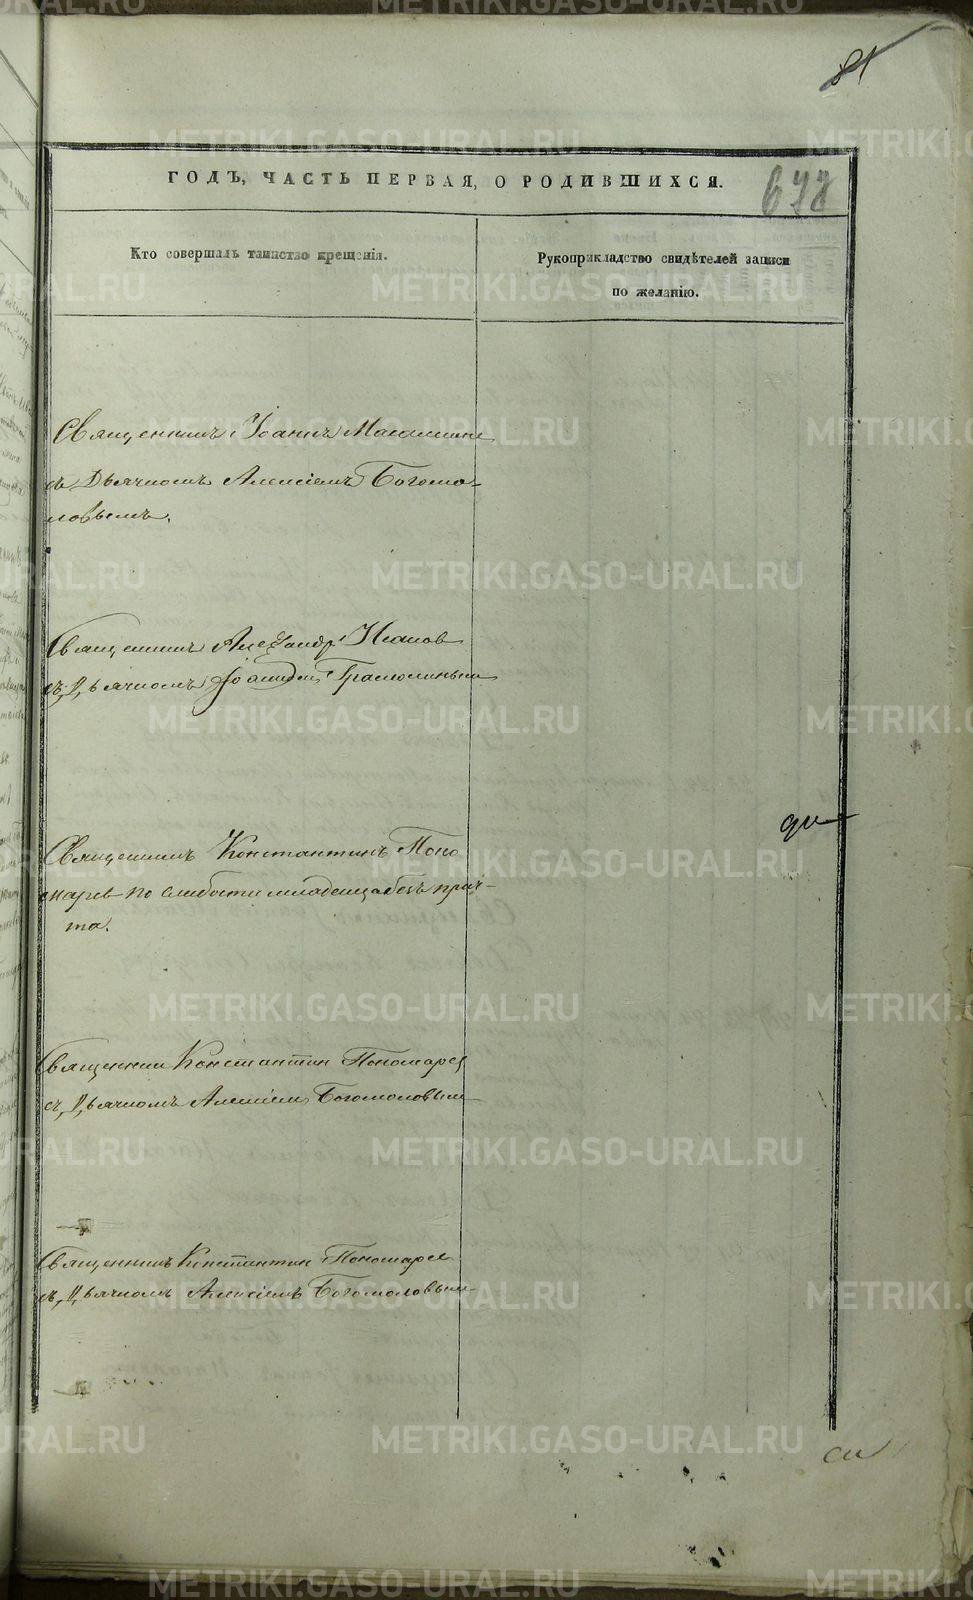 81
ГОДЪ, ЧАСТЬ ПЕРВАЯ, О РОДИВШИХСЯ.
678
Кто совершалъ таинство крещенія.
Рукоприкладство свидѣтелей записи
по желанію.
Священникъ Іоаннъ
съ Дьячкомъ Алексіемъ Богомо-
ловымъ.
Священникъ Александръ
съ Дьячкомъ
Священникъ Константинъ Поно
марев по слабости младенца безъ прич-
та.
Священник Константин Пономарев
съ Дьячкомъ Алексіем Богомоловым
Священникъ Константин Пономарев
съ Дьячкомъ Алексіемъ Богомоловым
METRIKI.GASO-URAL.RU